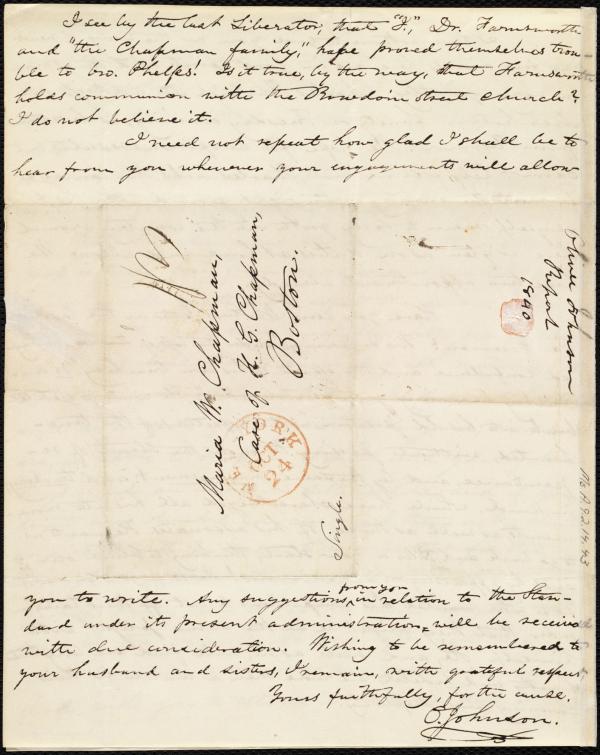 I see by the last Liberator, that "F.", Dr. Farnsworth
and "the Chapman family," have proved themselves trou-
ble to bro. Phelps! Is it true, by the way, that Farnsworth
holds communion with the Bowdoin street church?
I do not believe it.
I need not repeat how glad I shall be to
hear from you whenever your engagements will allow
Maria W. Chapman,
Care of H. G. Chapman,
Boston.
NEW YORK
OCT
24
Single.
Oliver Johnson
1840
Ms.A.9.2.14.43
you to write. Any suggestions from you in relation to the Stan-
dard under its present administration will be received
with due consideration. Wishing to be remembered to
your husband and sisters, I remain, with grateful respect,
Yours faithfully, for the cause,
O. Johnson.